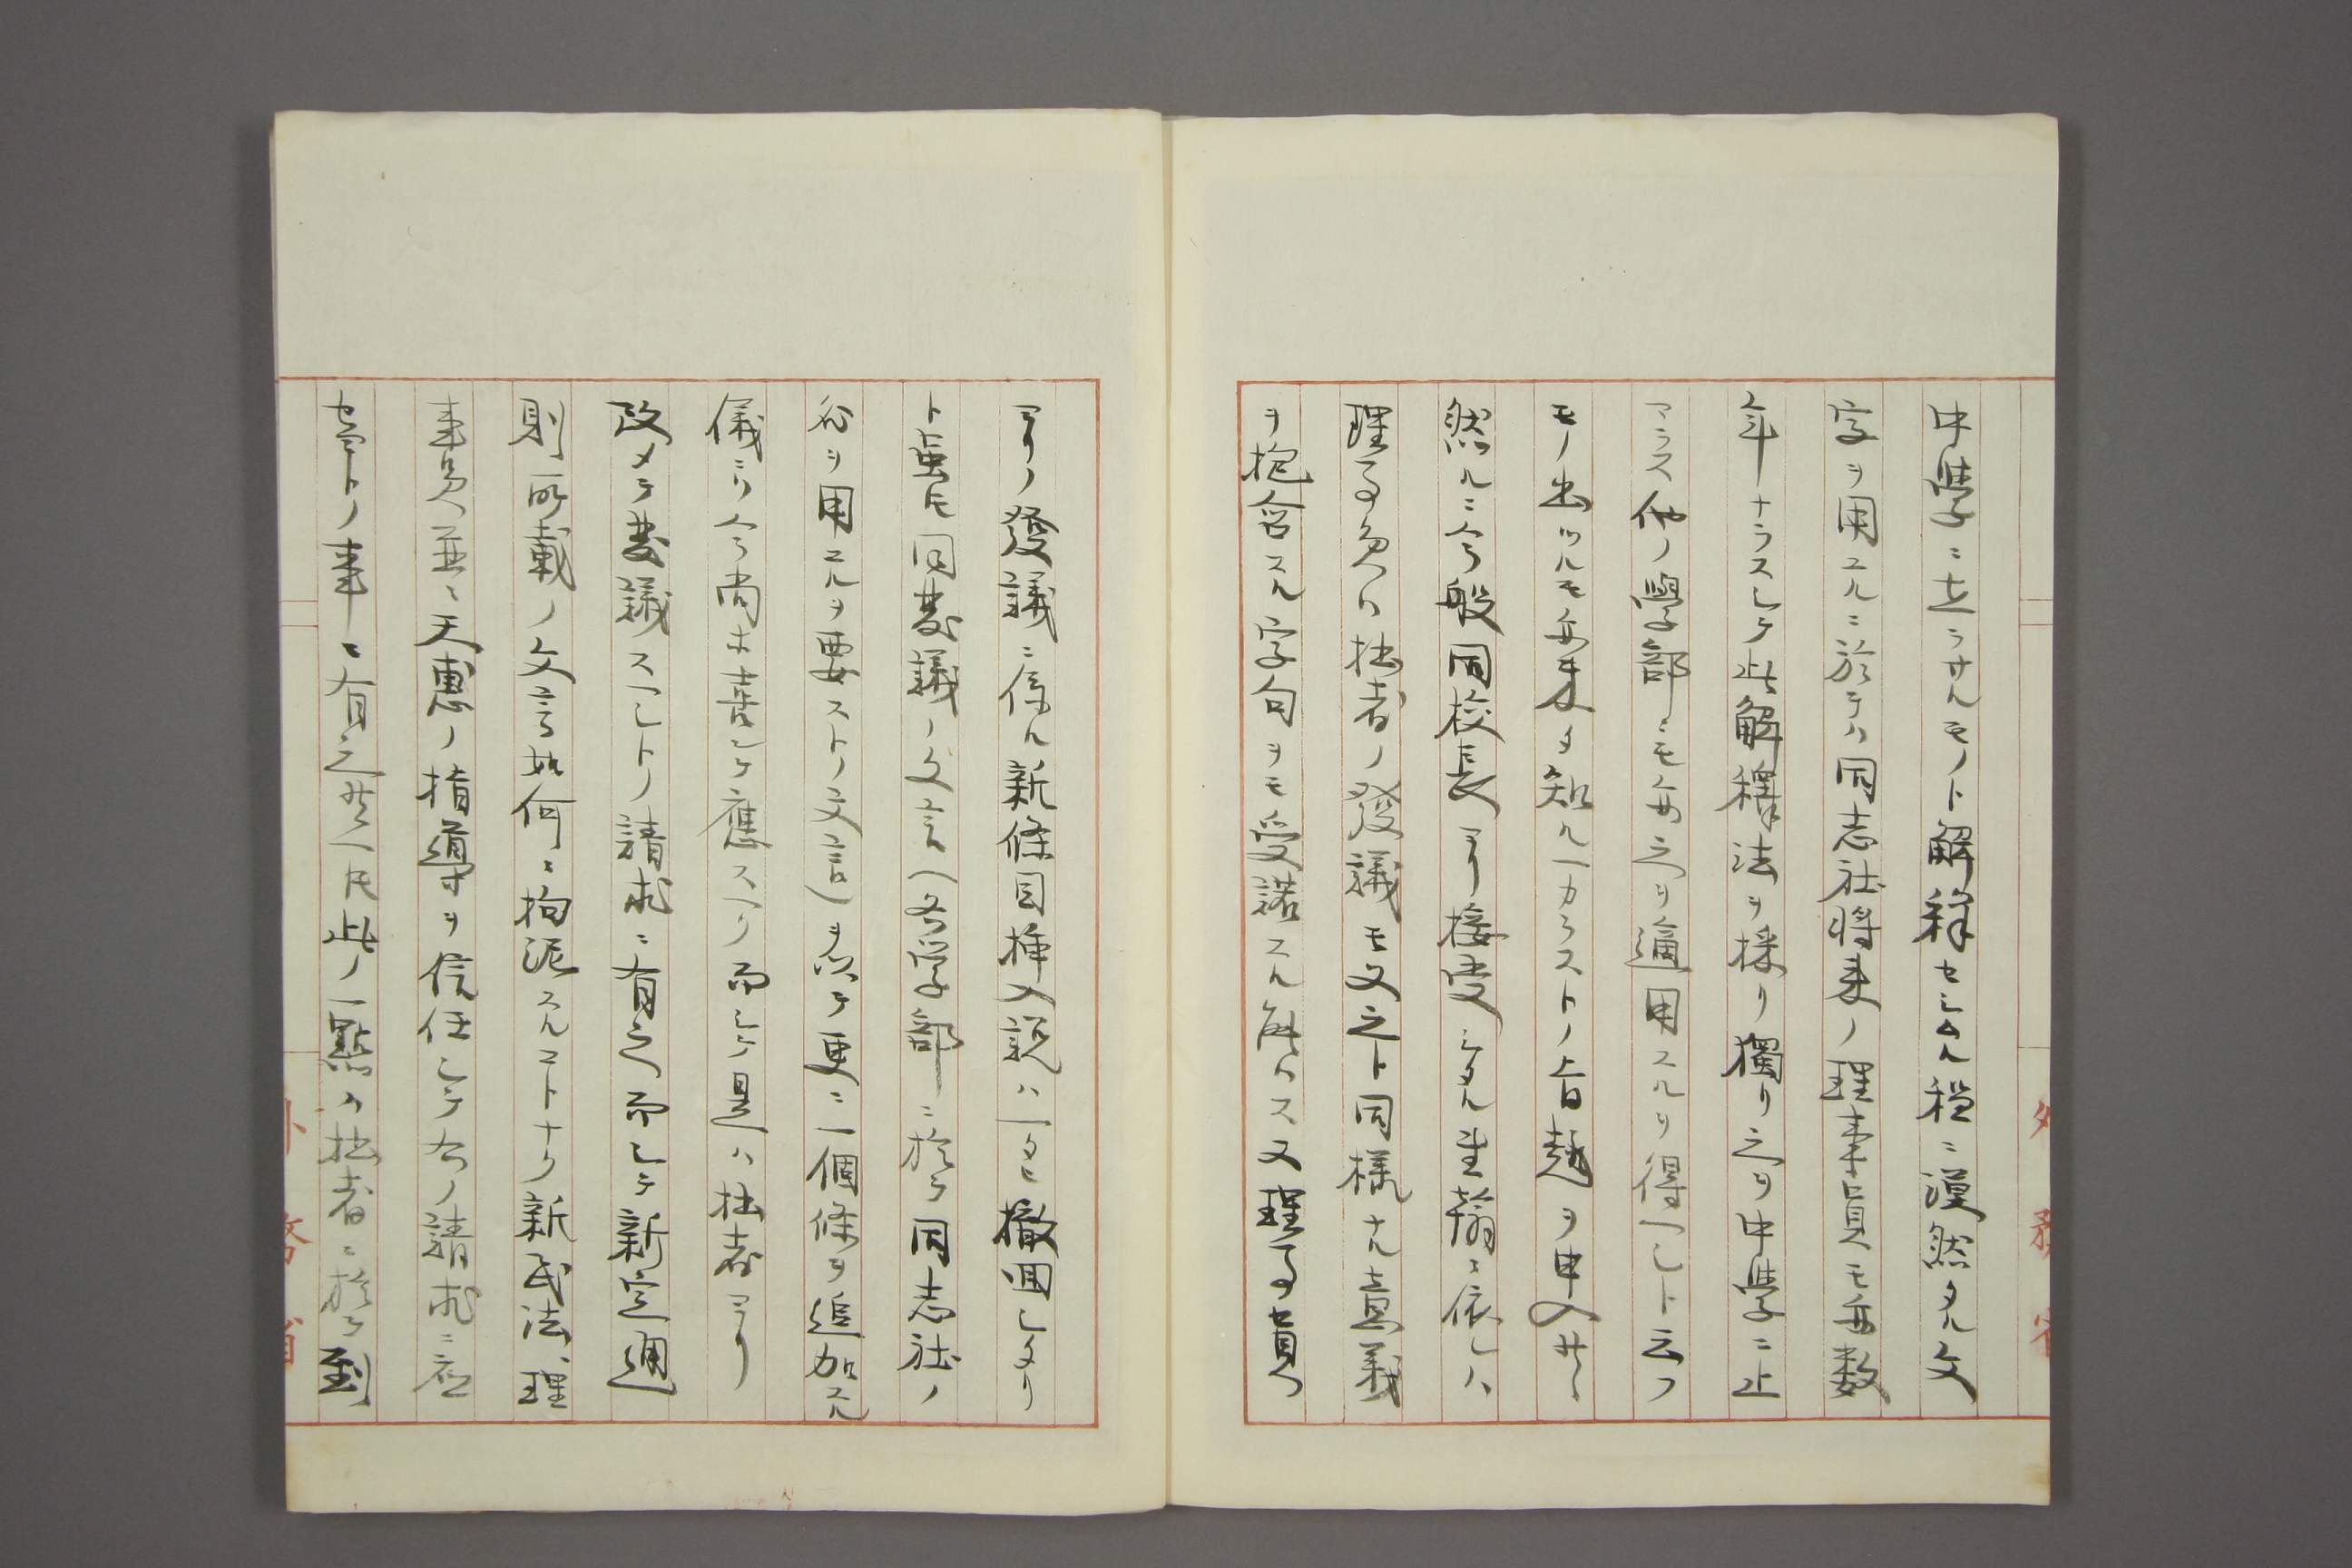 中學ニ止ラサルモノト解釋セシムル程ニ漠然タル文
字ヲ用ユルニ於テハ同志社將來ノ理事員モ毎数
年ナラスシテ此解釋法ヲ採リ獨リ之ヲ中學ニ止
マラス他ノ學部ニモ毎之ヲ適用スルヲ得ヘシト云フ
モノ出ツルモ毎来タ知ルヘカラストノ旨趣ヲ申入サレ
然ルニ今般同校長ヨリ接受シタル書翰ニ依レハ
理事員ハ拙者ノ發議モ又之ト同様ナル意義
ヲ抱含スル字句ヲモ受諾スル能ハス又理事員
ヨリノ發議ニ係ル新條目挿入説ハ一タヒ撤回シタリ
ト虽𪜈同發議ノ文言(各学部ニ於テ同志社ノ
名ヲ用ユルヲ要ストノ文言)ヲ以テ更ニ一個條ヲ追加スル
儀ニハ今尚ホ喜ンテ應スヘク而シテ是ハ拙者ヨリ
改メテ發議スヘシトノ請求ニ有之而シテ新定通
則所載ノ文言如何ニ拘泥スルコトナク新民法、理
事員並ニ天惠ノ指導ヲ信任シテ右ノ請求ニ應
セヨトノ事ニ有之候ヘ𪜈此ノ一點ハ拙者ニ於テ到
外務省
外務省